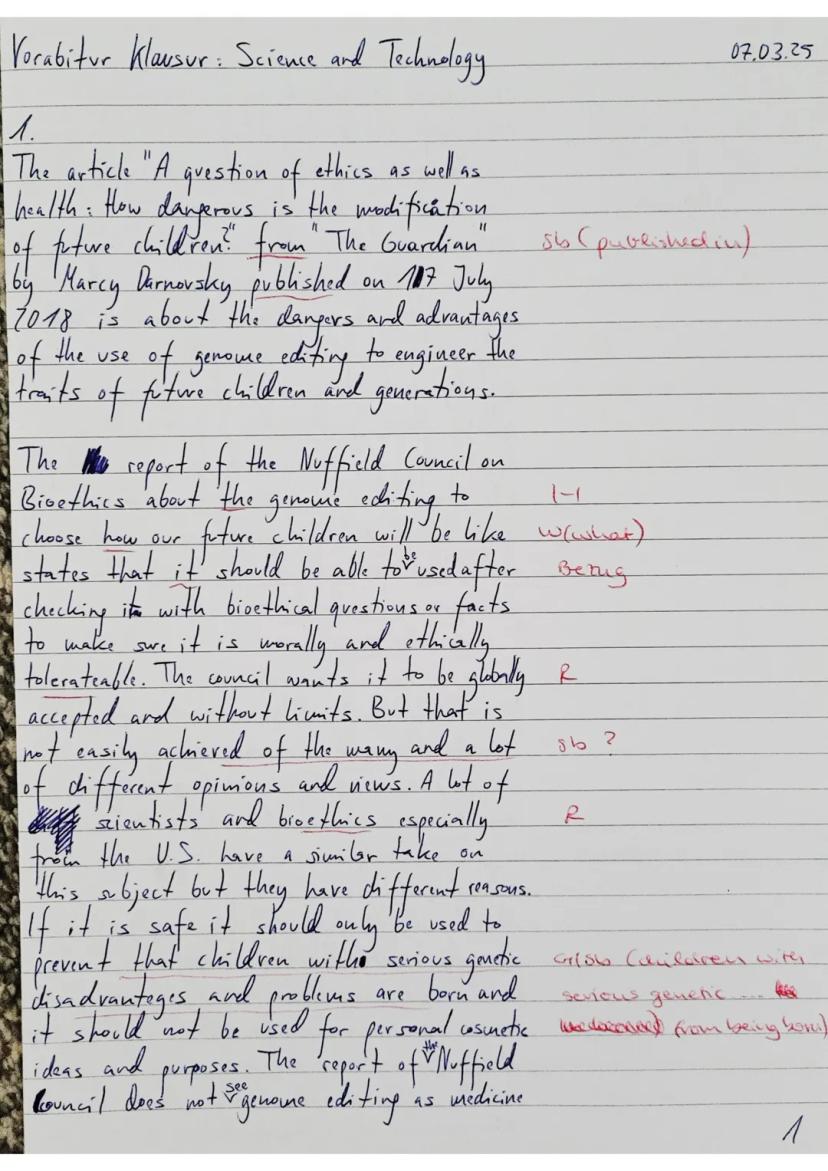 Vorabitur Klausur: Science and Technology 07.03.25
1.
The article "A question of ethics as well as
health: How dangerous is the modification
of future children?" from "The Guardian" sb (published in)
by Marcy Darnovsky published on 17 July
2018 is about the dangers and advantages
of the use of genome editing to engineer the
traits of future children and generations.
The report of the Nuffield Council on
Bioethics about the genome editing to |-|
choose how our future children will be like w(what)
states that it should be able to be used after Bezug
checking it with bioethical questions or facts
to make sure it is morally and ethically
tolerateable. The council wants it to be globally R
accepted and without limits. But that is
not easily achieved of the many and a lot sb ?
of different opinions and views. A lot of
scientists and bioethics especially R
from the U.S. have a similar take on
this subject but they have different reasons.
If it is safe it should only be used to
prevent that children with serious genetic Gr/sb (children with
disadvanteges and problems are born and serious genetic ...
it should not be used for personal cosmetic from being born)
ideas and purposes. The report of the Nuffield
Council does not see genome editing as medicine
1